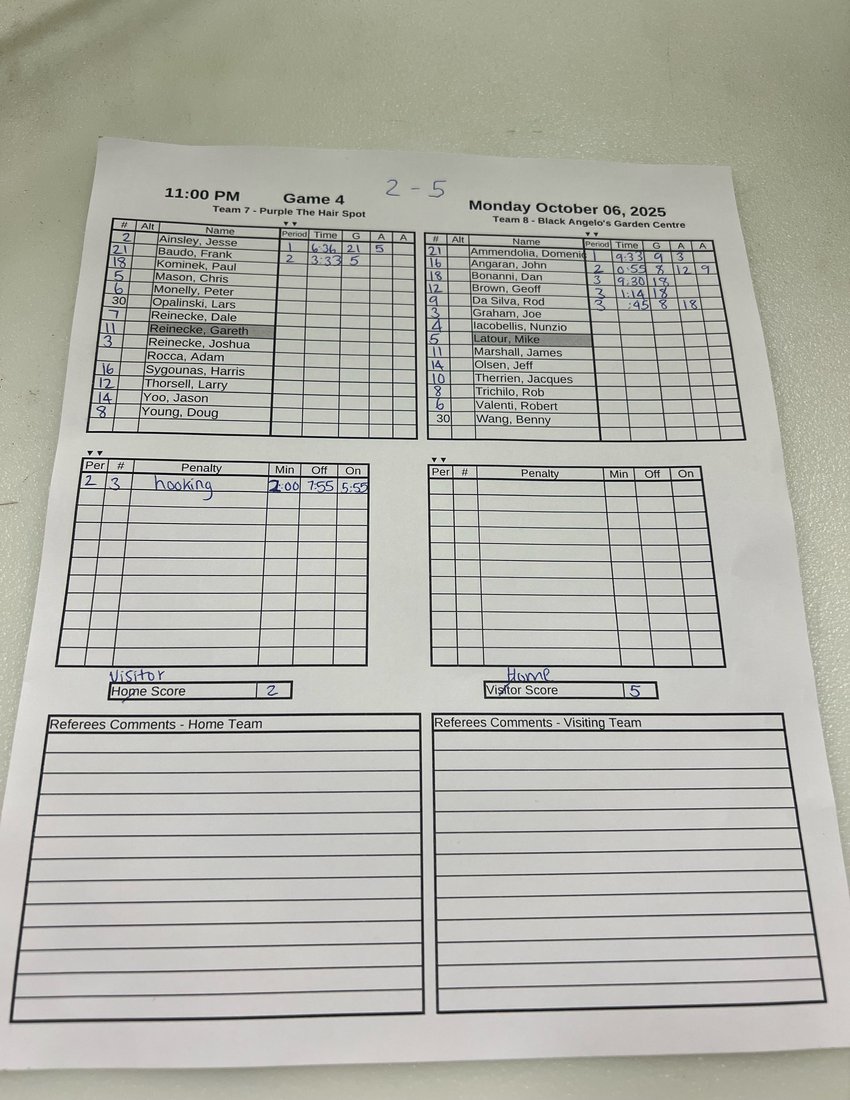 2 - 5
11:00 PM Game 4 Monday October 06, 2025
Team 7 - Purple The Hair Spot
# Alt Name Period Time G A A
2 Ainsley, Jesse 1 6:36 21 5
21 Baudo, Frank 2 3:33 5
18 Kominek, Paul
5 Mason, Chris
6 Monelly, Peter
30 Opalinski, Lars
7 Reinecke, Dale
11 Reinecke, Gareth
3 Reinecke, Joshua
Rocca, Adam
16 Sygounas, Harris
12 Thorsell, Larry
14 Yoo, Jason
8 Young, Doug
Team 8 - Black Angelo's Garden Centre
# Alt Name Period Time G A A
21 Ammendolia, Domenic 1 9:33 9 3
16 Angaran, John 2 0:55 8 12 9
18 Bonanni, Dan 3 9:30 18
12 Brown, Geoff 3 1:14 18
9 Da Silva, Rod 3 :45 8 18
3 Graham, Joe
4 Iacobellis, Nunzio
5 Latour, Mike
11 Marshall, James
14 Olsen, Jeff
10 Therrien, Jacques
8 Trichilo, Rob
6 Valenti, Robert
30 Wang, Benny
Per # Penalty Min Off On
2 3 hooking 2:00 7:55 5:55
Per # Penalty Min Off On
Visitor
Home Score 2
Home
Visitor Score 5
Referees Comments - Home Team
Referees Comments - Visiting Team